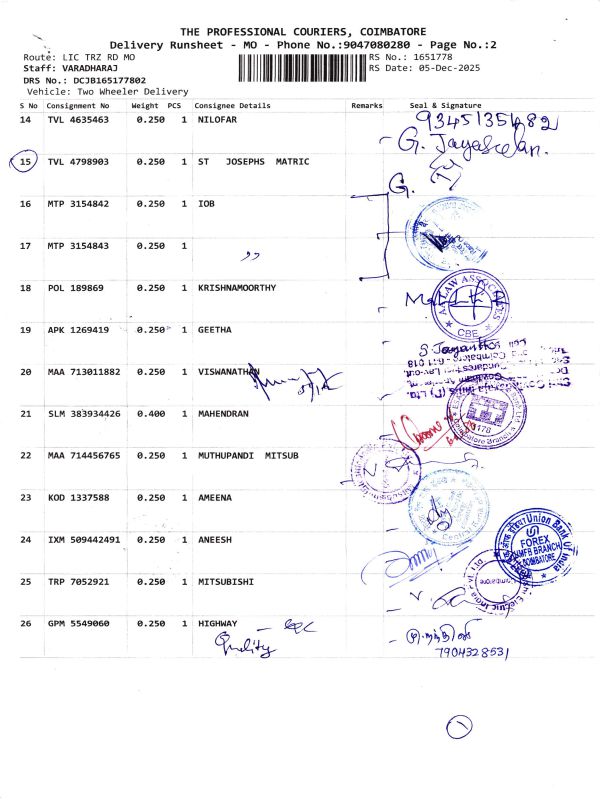 THE PROFESSIONAL COURIERS, COIMBATORE
Delivery Runsheet - MO - Phone No.:9047080280 - Page No.:2
Route: LIC TRZ RD MO
RS No.: 1651778
Staff: VARADHARAJ
RS Date: 05-Dec-2025
DRS No.: DCJB165177802
Vehicle: Two Wheeler Delivery
S No Consignment No Weight PCS Consignee Details Remarks Seal & Signature
14 TVL 4635463 0.250 1 NILOFAR
G. Jayaseelan.
15 TVL 4798903 0.250 1 ST JOSEPHS MATRIC
G.
16 MTP 3154842 0.250 1 IOB
17 MTP 3154843 0.250 1
18 POL 189869 0.250 1 KRISHNAMOORTHY
LAW ASSOCIATES
CBE
19 APK 1269419 0.250 1 GEETHA
20 MAA 713011882 0.250 1 VISWANATHAN
21 SLM 383934426 0.400 1 MAHENDRAN
22 MAA 714456765 0.250 1 MUTHUPANDI MITSUB
23 KOD 1337588 0.250 1 AMEENA
24 IXM 509442491 0.250 1 ANEESH
Union Bank Of India
FOREX
COIMBATORE
25 TRP 7052921 0.250 1 MITSUBISHI
Coimbatore
26 GPM 5549060 0.250 1 HIGHWAY
Quality
7904328531
1